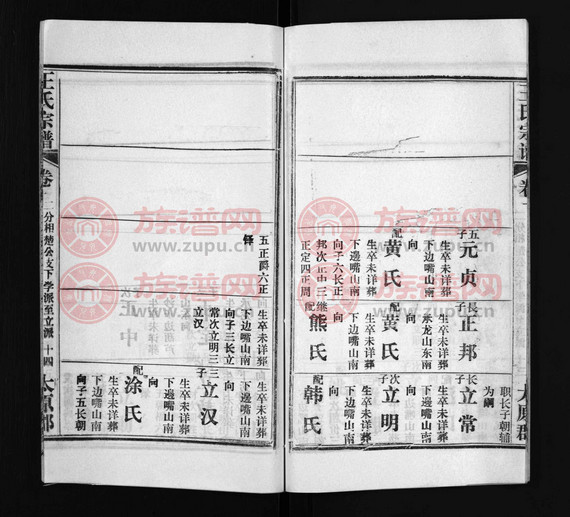 王氏宗谱
卷十二
五子
元贞
生卒未详葬
下边嘴山南
向
配
黄氏
生卒未详葬
下边嘴山南
向子六长正
邦次正中三继
正定四正周
五正爵六正
铎
长子
正邦
生卒未详葬
承龙山东南
向
配
黄氏
生卒未详葬
下边嘴山南
向
继配
熊氏
生卒未详葬
下边嘴山南
向子三长立
常次立明三
立汉
职长子朝辅
为嗣
长子
立常
生卒未详葬
下边嘴山南
向
次子
立明
生卒未详葬
下边嘴山南
向
配
韩氏
生卒未详葬
下边嘴山南
向
三子
立汉
生卒未详葬
下边嘴山南
向
配
涂氏
生卒未详葬
下边嘴山南
向子五长朝
太原郡
王氏宗谱
卷十二
分相楚公支下学派至立派
十四
太原郡
族谱网
www.zupu.cn
族谱网
www.zupu.cn
族谱网
www.zupu.cn
族谱网
www.zupu.cn